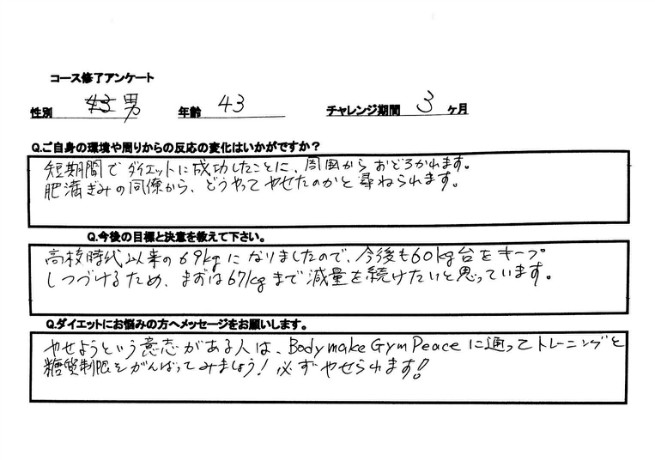 コース修了アンケート
性別 男 年齢 43 チャレンジ期間 3 ヶ月
Q.ご自身の環境や周りからの反応の変化はいかがですか?
短期間でダイエットに成功したことに、周囲からおどろかれます。
肥満ぎみの同僚から、どうやってやせたのかと尋ねられます。
Q.今後の目標と決意を教えて下さい。
高校時代以来の69kgになりましたので、今後も60kg台をキープ
しつづけるため、まずは67kgまで減量を続けたいと思っています。
Q.ダイエットにお悩みの方へメッセージをお願いします。
やせようという意志がある人は、Body make Gym Peaceに通ってトレーニングと
糖質制限をがんばってみましょう!必ずやせられます!